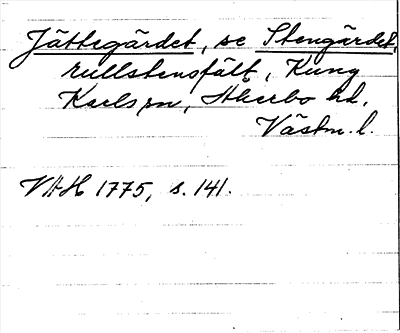 Jättegärdet, se Stengärdet,
rullstensfält, Kung
Karls sn, Åkerbo hd,
Västm. l.
VAH 1775, s. 141.